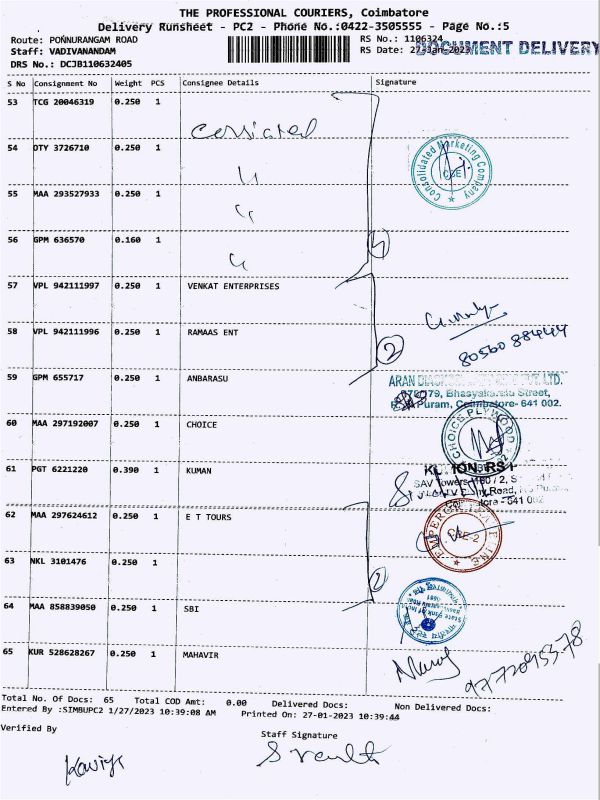 THE PROFESSIONAL COURIERS, Coimbatore
Delivery Runsheet - PC2 - Phone No.:0422-3505555 - Page No.:5
Route: PONNURANGAM ROAD
RS No.: 1106324
Staff: VADIVANANDAM
RS Date: 27-Jan-2023
DOCUMENT DELIVERY
DRS No.: DCJB110632405
S No Consignment No Weight PCS Consignee Details Signature
53 TCG 20046319 0.250 1
54 DTY 3726710 0.250 1
Consolidated Marketing Company
CBE
55 MAA 293527933 0.250 1
56 GPM 636570 0.160 1
57 VPL 942111997 0.250 1 VENKAT ENTERPRISES
58 VPL 942111996 0.250 1 RAMAAS ENT
2
80560 88444
59 GPM 655717 0.250 1 ANBARASU
ARAN PVT. LTD.
Bhasyakaralu Street,
Puram, Coimbatore- 641 002.
60 MAA 297192007 0.250 1 CHOICE
CHOICE PLYWOOD
61 PGT 6221220 0.390 1 KUMAN
SAV Towers
Road,
641 002
62 MAA 297624612 0.250 1 E T TOURS
CBE-2
63 NKL 3101476 0.250 1
2
64 MAA 858839050 0.250 1 SBI
State Bank of India
65 KUR 528628267 0.250 1 MAHAVIR
Total No. Of Docs: 65 Total COD Amt: 0.00 Delivered Docs: Non Delivered Docs:
Entered By :SIMBUPC2 1/27/2023 10:39:08 AM Printed On: 27-01-2023 10:39:44
Verified By
Staff Signature